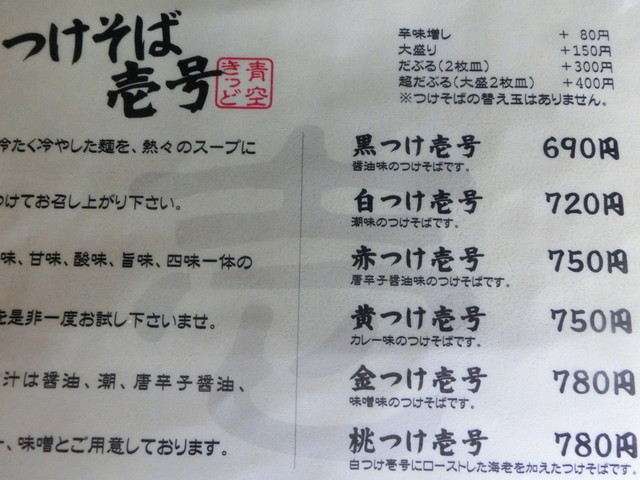 つけそば
壱号
青空
きっど
辛味増し ＋ 80円
大盛り ＋150円
だぶる(2枚皿) ＋300円
超だぶる(大盛2枚皿) ＋400円
※つけそばの替え玉はありません。
冷たく冷やした麺を、熱々のスープに
つけてお召し上がり下さい。
味、甘味、酸味、旨味、四味一体の
を是非一度お試し下さいませ。
汁は醤油、潮、唐辛子醤油、
ー、味噌とご用意しております。
黒つけ壱号 690円
醤油味のつけそばです。
白つけ壱号 720円
潮味のつけそばです。
赤つけ壱号 750円
唐辛子醤油味のつけそばです。
黄つけ壱号 750円
カレー味のつけそばです。
金つけ壱号 780円
味噌味のつけそばです。
桃つけ壱号 780円
白つけ壱号にローストした海老を加えたつけそばです。